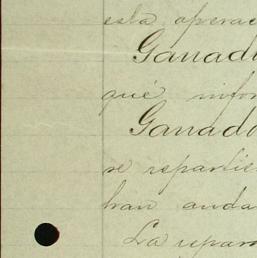 esta operac
Ganad
qué infor
Ganad
se repartie
han anda
La repar